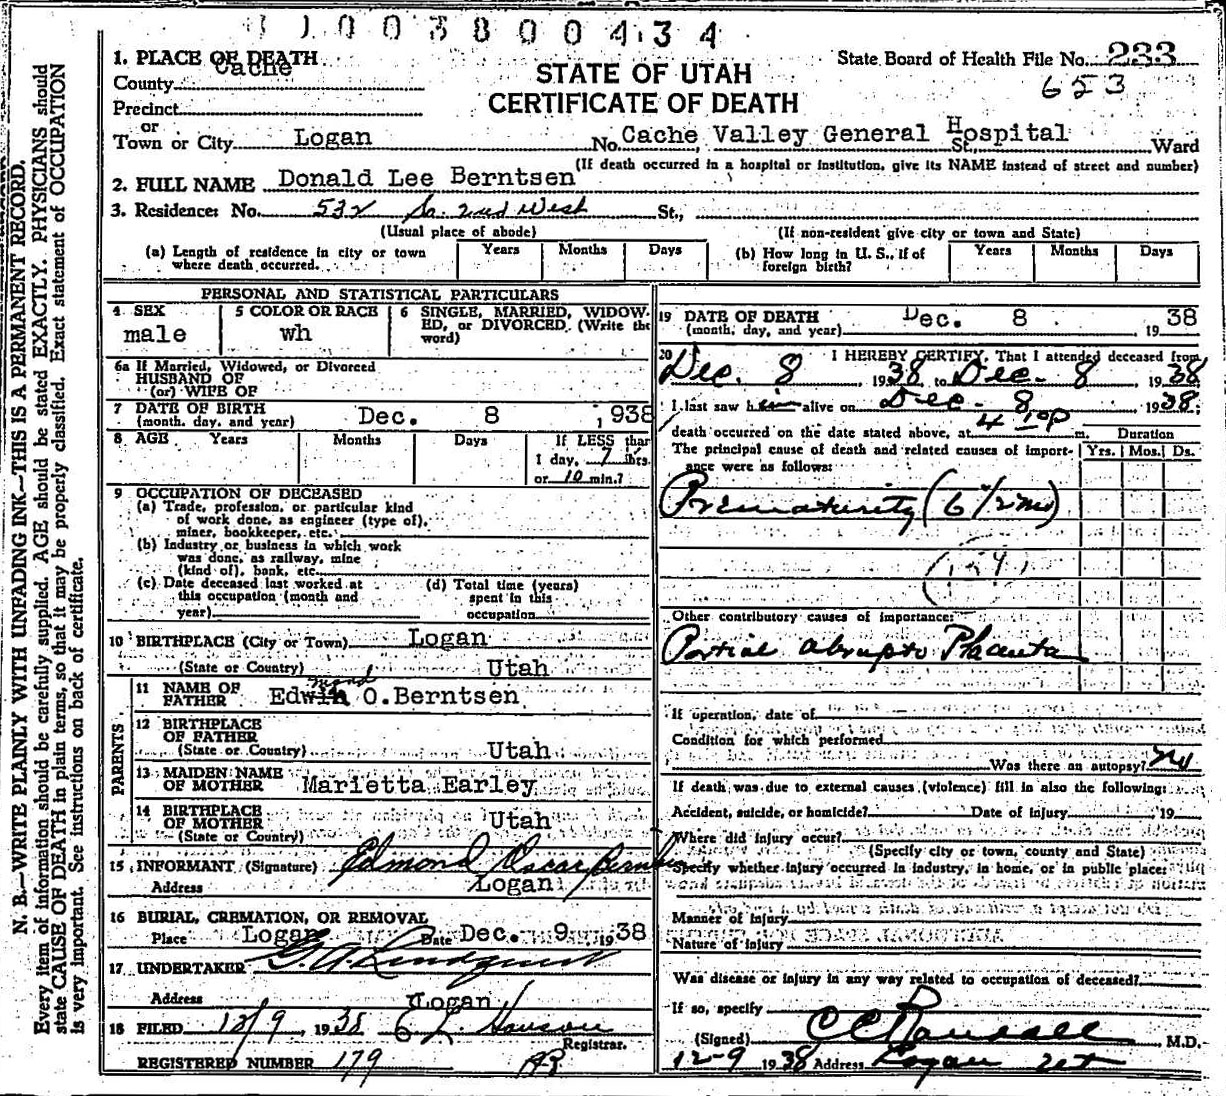 1003800434
1. PLACE OF DEATH
County Cache
Precinct
or
Town or City Logan
STATE OF UTAH
CERTIFICATE OF DEATH
State Board of Health File No. 233
653
No. Cache Valley General Hospital St., Ward
(If death occurred in a hospital or institution, give its NAME instead of street and number)
2. FULL NAME Donald Lee Berntsen
3. Residence: No. 532 So. 2nd West St.,
(Usual place of abode) (If non-resident give city or town and State)
(a) Length of residence in city or town where death occurred. Years Months Days
(b) How long in U. S., if of foreign birth? Years Months Days
PERSONAL AND STATISTICAL PARTICULARS
4 SEX
male
5 COLOR OR RACE
wh
6 SINGLE, MARRIED, WIDOWED, or DIVORCED (Write the word)
6a If Married, Widowed, or Divorced
HUSBAND OF
(or) WIFE OF
7 DATE OF BIRTH
(month, day, and year) Dec. 8 1938
8 AGE Years Months Days If LESS than
1 day, 7 hrs.
or 10 min.?
9 OCCUPATION OF DECEASED
(a) Trade, profession, or particular kind
of work done, as engineer (type of),
miner, bookkeeper, etc.
(b) Industry or business in which work
was done, as railway, mine
(kind of), bank, etc.
(c) Date deceased last worked at
this occupation (month and
year)
(d) Total time (years)
spent in this
occupation
10 BIRTHPLACE (City or Town) Logan
(State or Country) Utah
PARENTS
11 NAME OF
FATHER Edwin mond O. Berntsen
12 BIRTHPLACE
OF FATHER
(State or Country) Utah
13 MAIDEN NAME
OF MOTHER Marietta Earley
14 BIRTHPLACE
OF MOTHER
(State or Country) Utah
15 INFORMANT (Signature) Edmond Oscar Berntsen
Address Logan
16 BURIAL, CREMATION, OR REMOVAL
Place Logan Date Dec. 9 1938
17 UNDERTAKER G. A. Lindquist
Address Logan
18 FILED 12/9 1938 E L Hanson
Registrar.
REGISTERED NUMBER 179
19 DATE OF DEATH
(month, day, and year) Dec. 8 1938
20 I HEREBY CERTIFY, That I attended deceased from
Dec. 8, 1938 to Dec. 8, 1938
I last saw him alive on Dec. 8 1938;
death occurred on the date stated above, at 4 10 P m. Duration
The principal cause of death and related causes of importance were as follows: Yrs. Mos. Ds.
Prematurity (6 1/2 mo)
Other contributory causes of importance:
Partial abrupto Placenta
If operation, date of
Condition for which performed
Was there an autopsy? No
If death was due to external causes (violence) fill in also the following:
Accident, suicide, or homicide? Date of injury 19
Where did injury occur?
(Specify city or town, county and State)
Specify whether injury occurred in industry, in home, or in public place:
Manner of injury
Nature of injury
Was disease or injury in any way related to occupation of deceased?
If so, specify
(Signed) C C Randall M.D.
12-9 1938 Address Logan Ut
N. B.—WRITE PLAINLY WITH UNFADING INK—THIS IS A PERMANENT RECORD.
Every item of information should be carefully supplied. AGE should be stated EXACTLY. PHYSICIANS should
state CAUSE OF DEATH in plain terms, so that it may be properly classified. Exact statement of OCCUPATION
is very important. See instructions on back of certificate.